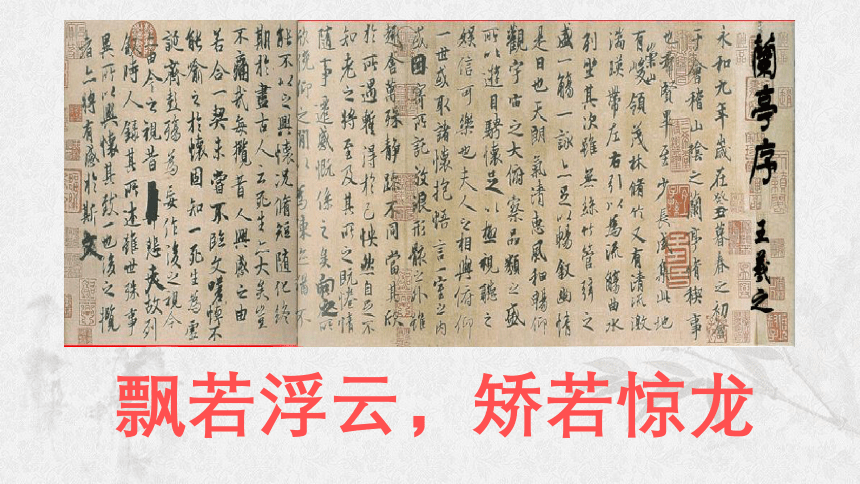 蘭亭序 王羲之
永和九年歲在癸丑暮春之初會
于會稽山陰之蘭亭脩稧事
也羣賢畢至少長咸集此地
有崇山峻領茂林脩竹又有清流激
湍暎帶左右引以為流觴曲水
列坐其次雖無絲竹管弦之
盛一觴一詠亦足以暢叙幽情
是日也天朗氣清惠風和暢仰
觀宇宙之大俯察品類之盛
所以遊目騁懷足以極視聽之
娛信可樂也夫人之相與俯仰
一世或取諸懷抱悟言一室之內
或因寄所託放浪形骸之外雖
趣舍萬殊靜躁不同當其欣
於所遇暫得於己怏然自足不
知老之將至及其所之既惓情
隨事遷感慨係之矣向之所
欣俛仰之間以為陳迹猶不
能不以之興懷況脩短隨化終
期於盡古人云死生亦大矣豈
不痛哉每攬昔人興感之由
若合一契未嘗不臨文嗟悼不
能喻之於懷固知一死生為虛
誕齊彭殤為妄作後之視今
亦由今之視昔悲夫故列
敘時人錄其所述雖世殊事
異所以興懷其致一也後之攬
者亦將有感於斯文
飘若浮云，矫若惊龙